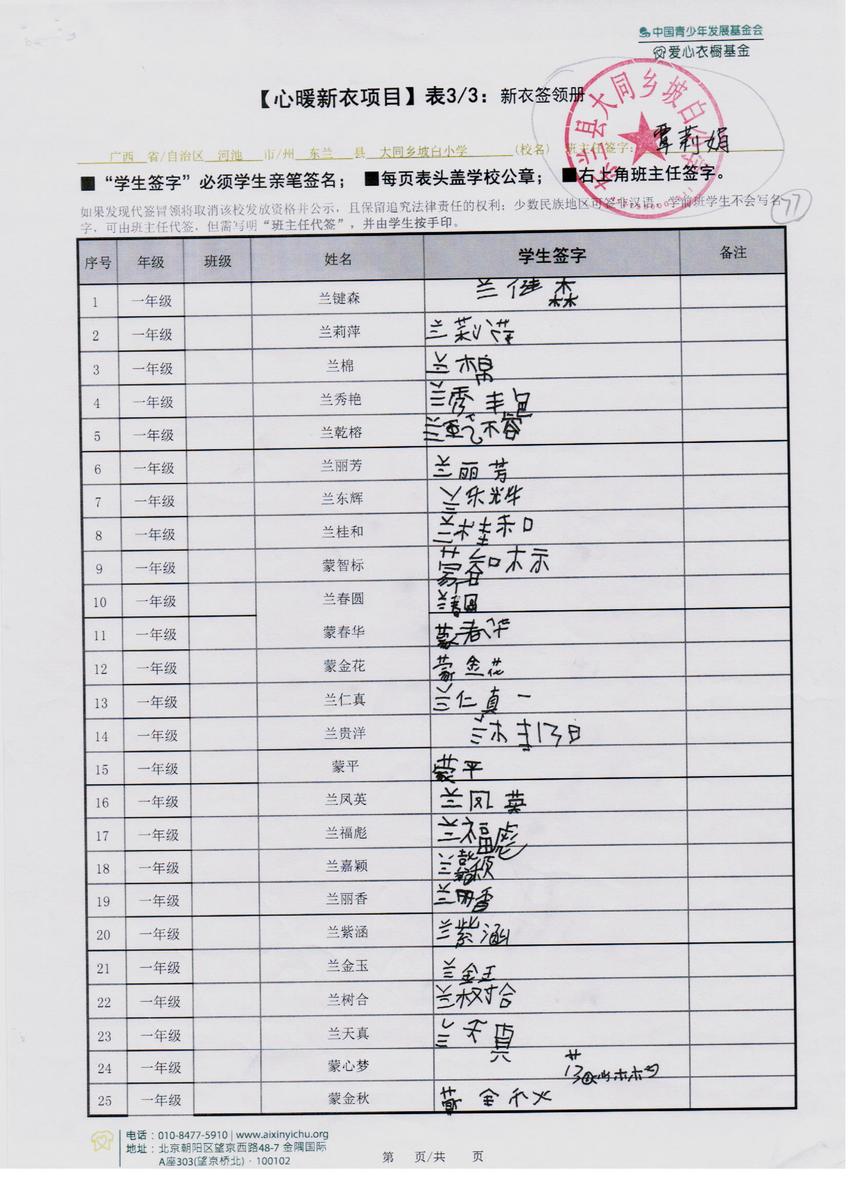 中国青少年发展基金会
爱心衣橱基金
【心暖新衣项目】表3/3：新衣签领册
广西 省/自治区 河池 市/州 东兰 县 大同乡坡白小学 (校名) 班主任签字： 覃莉娟
■“学生签字”必须学生亲笔签名； ■每页表头盖学校公章； ■右上角班主任签字。
如果发现代签冒领将取消该校发放资格并公示，且保留追究法律责任的权利；少数民族地区可签非汉语，学前班学生不会写名
字，可由班主任代签，但需写明“班主任代签”，并由学生按手印。
77
序号 年级 班级 姓名 学生签字 备注
1 一年级 兰键森 兰健森
2 一年级 兰莉萍 兰莉萍
3 一年级 兰棉 兰棉
4 一年级 兰秀艳 兰秀艳
5 一年级 兰乾榕 兰乾榕
6 一年级 兰丽芳 兰丽芳
7 一年级 兰东辉 兰东辉
8 一年级 兰桂和 兰桂和
9 一年级 蒙智标 蒙智标
10 一年级 兰春圆 兰春圆
11 一年级 蒙春华 蒙春华
12 一年级 蒙金花 蒙金花
13 一年级 兰仁真 兰仁真
14 一年级 兰贵洋
15 一年级 蒙平 蒙平
16 一年级 兰凤英 兰凤英
17 一年级 兰福彪 兰福彪
18 一年级 兰嘉颖 兰嘉颖
19 一年级 兰丽香 兰丽香
20 一年级 兰紫涵 兰紫涵
21 一年级 兰金玉 兰金玉
22 一年级 兰树合 兰树合
23 一年级 兰天真 兰天真
24 一年级 蒙心梦
25 一年级 蒙金秋 蒙金秋
电话：010-8477-5910 | www.aixinyichu.org
地址：北京朝阳区望京西路48-7 金隅国际
A座303(望京桥北)·100102
第 页/共 页